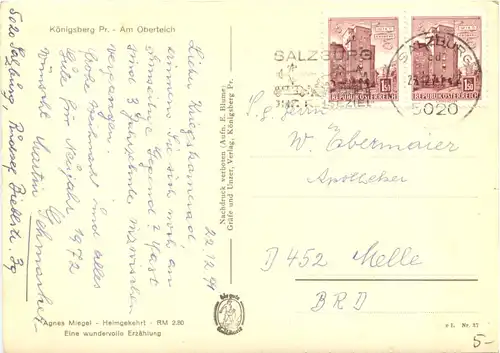 Königsberg Pr. - Am Oberteich
22.12.71
Lieber Kriegskamerad,
erinnern Sie sich noch an
Gegend? Fast
sind 3 Jahrzehnte inzwischen
vergangen.
Frohe Weihnacht und alles
Gute für Neujahr 1972
wünscht Martin
5020 Salzburg, Rudolf Bieblstr. 39
Agnes Miegel - Heimgekehrt - RM 2.20
Eine wundervolle Erzählung
Nachdruck verboten (Aufn. E. Blume)
Gräfe und Unzer, Verlag, Königsberg Pr.
SALZBURG
SALZBURG
5020
1.50
REPUBLIK ÖSTERREICH
1.50
REPUBLIK ÖSTERREICH
W. Ebermaier
Apotheker
D 452 Melle
BRD
Nr. 27
5-